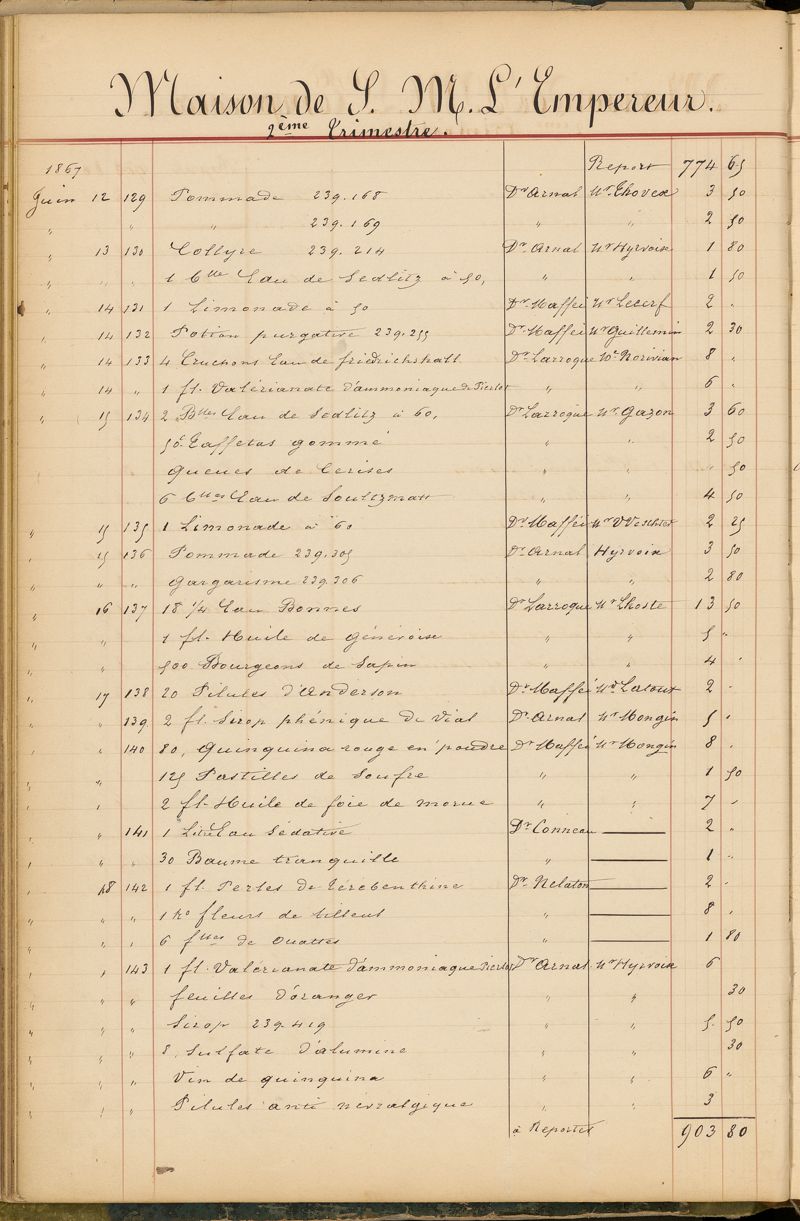 Maison de S. M. L'Empereur.
2ème Trimestre.
1867 Report 774 65
Juin 12 129 Pommade 239.168 Dr Arnal Mr Thovex 3 50
" " " " 239.169 " " 2 50
" 13 130 Collyre 239.214 Dr Arnal Mr Hyrvoix 1 80
" " " 1 Blle Eau de Sedlitz à 50, " " 1 50
" 14 131 1 Limonade à 50 Dr Maffei Mr Lecerf 2 "
" 14 132 Potion purgative 239.255 Dr Maffei Mr Guillemin 2 30
" 14 133 4 Cruchons Eau de friedrichshall Dr Larroque 8 "
" 14 " 1 fl. Valérianate d'ammoniaque de Pierlot " " 6 "
" 15 134 2 Blles Eau de Sedlitz à 60, Dr Larroque Mr Gazon 3 60
50c Taffetas gommé " " 2 50
Queues de Cerises " " " 50
6 Blles Eau de Soultzmatt " " 4 50
" 15 135 1 Limonade à 60 Dr Maffei Mr 2 25
" 15 136 Pommade 239.305 Dr Arnal Hyrvoix 3 50
" " " Gargarisme 239.306 " " 2 80
" 16 137 18 1/4 Eau Bonnes Dr Larroque Mr Lhoste 13 50
" " 1 fl. Huile de Génévoise " " 5 "
" " 500 Bourgeons de Sapin " " 4 "
" 17 138 20 Pilules d'Anderson Dr Maffei Mr Latour 2 "
" " 139 2 fl. Sirop phénique de Vial Dr Arnal Mr Mongin 5 "
" " 140 80, Quinquina rouge en poudre Dr Maffei Mr Mongin 8 "
" " 125 Pastilles de Soufre " " 1 50
" " 2 fl. Huile de foie de morue " " 7 "
" " 141 1 Litre Eau Sédative Dr Conneau 2 "
" " " 30 Baume tranquille " 1 "
" 18 142 1 fl. Perles de Térébenthine Dr Nelaton 2 "
" " " 1 ko fleurs de tilleul " 8 "
" " " 6 flles de Ouattes " 1 80
" " 143 1 fl. Valérianate d'ammoniaque Pierlot Dr Arnal Mr Hyrvoix 6
" " " feuilles d'oranger " " 30
" " " Sirop 239.419 " " 5 50
" " " 8, Sulfate d'alumine " " 30
" " " Vin de quinquina " " 6 "
" " " Pilules anti névralgique " " 3
à Reporter 903 80